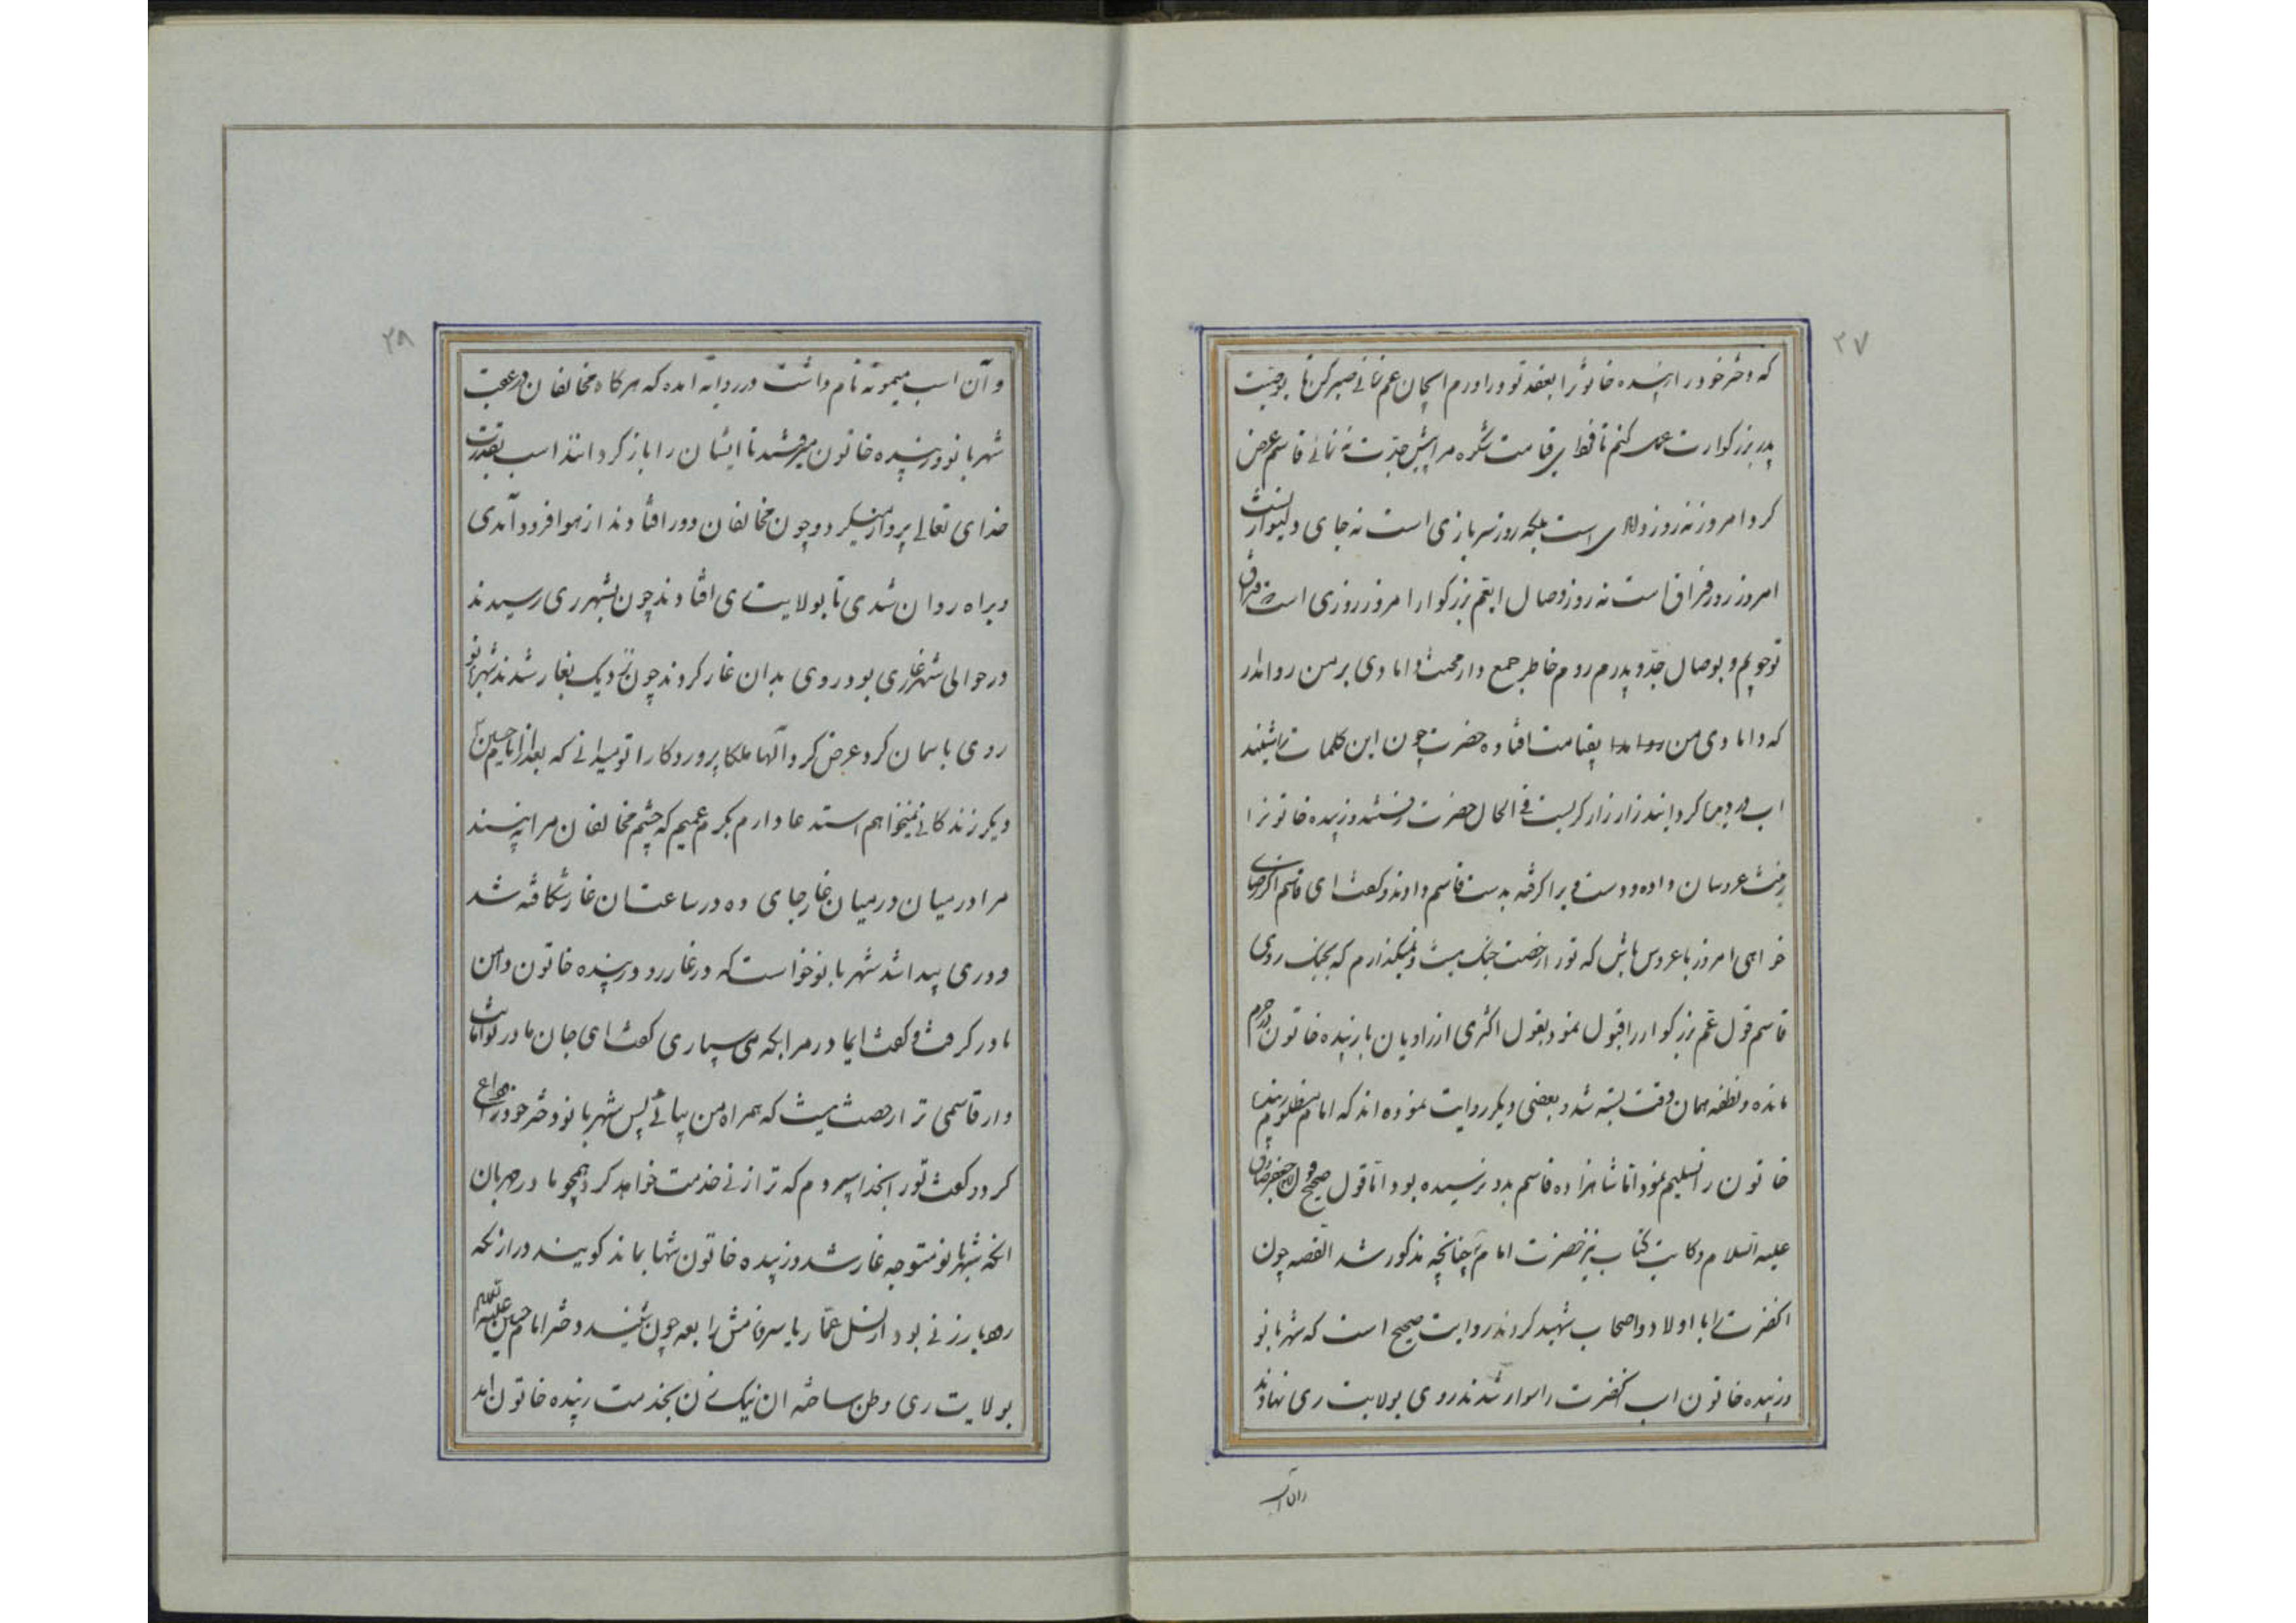 ۲۷
که دختر خود را زبیده خاتونرا بعقد تو دراورم ایجان عم تا صبر کن تا بوصیت
پدر بزرکوارت عمل کنم تا فردای قیامت شکوه مرا پیش جدت نه نمائے قاسم عرض
کرد امروز نه روز دامادی است بلکه روز سر بازی است نه جای
امروز روز فراق است نه روز وصال ایعم بزرکوار امروز روزی است
تو جویم و بوصال جد و پدرم روم خاطر جمع دار محنت دامادی بر من روا مدار
که دامادی من بقیامت افتاده حضرت چون این کلمات را شنید
اب در کردانید زار زار کریست فے الحال حضرت و زبیده خاتونرا
زینت عروسان داده و دست ویرا کرفته بدست قاسم دادند و کفت ای قاسم اکر رضای
خواهی امروز با عروس باش که تو را رخصت جنک نیست و نمیکذارم که بجنک روی
قاسم قول عم بزرکوار را قبول نمود بقول اکثری از راویان با زبیده خاتون در حرم
مانده و نطفه همان وقت بسته شد و بعضی دیکر روایت نموده اند که امام مظلوم زبیده
خاتون را تسلیم نمود اما شاهزاده قاسم بدو نرسیده بود اما قول صحیح قول امام جعفر صادق
علیه السلام و کایت کتاب نیز حضرت امام چنانچه مذکور شد القصه چون
انحضرت را با اولاد و اصحاب شهید کردند روایت صحیح است که شهربانو
و زبیده خاتون اسب انحضرت را سوار شدند روی بولایت ری نهادند
وان اسب
۲۸
و آن اسب میمونه نام داشت در روایه امده که هر کاه مخالفان در عقب
شهربانو و زبیده خاتون میرفتند تا ایشان را باز کردانند اسب بقدرت
خدای تعالے پرواز میکرد و چون مخالفان دور افتادند از هوا فرود آمدی
و براه روان شدی تا بولایت ری افتادند چون بشهر ری رسیدند
در حوالی شهر غاری بود روی بدان غار کردند چون نزدیک بغار شدند شهربانو
روی باسمان کرد عرض کرد الها ملکا پروردکارا تو میدانے که بعد از امام حسین
دیکر زندکانے نمیخواهم استدعا دارم بکرم عمیم که چشم مخالفان مرا نه بیند
مرا در میان در میان غار جای ده در ساعت ان غار شکافته شد
و دری پیدا شد شهربانو خواست که در غار رود زبیده خاتون دامن
مادر کرفت و کفت ایمادر مرا بکه می سپاری کفت ای جان مادر تو امانت
دار قاسمی ترا رخصت نیست که همراه من بیائے پس شهربانو دختر خود را وداع
کرد و کفت تو را بخدا سپردم که ترا زنے خدمت خواهد کرد همچو مادر مهربان
انکه شهربانو متوجه غار شد و زبیده خاتون تنها بماند کویند در ان
زنے بود از نسل عمار یاسر نامش رابعه چون شنید دختر امام حسین علیه السلام
بولایت ری وطن ساخته ان نیک زن بخدمت زبیده خاتون امد